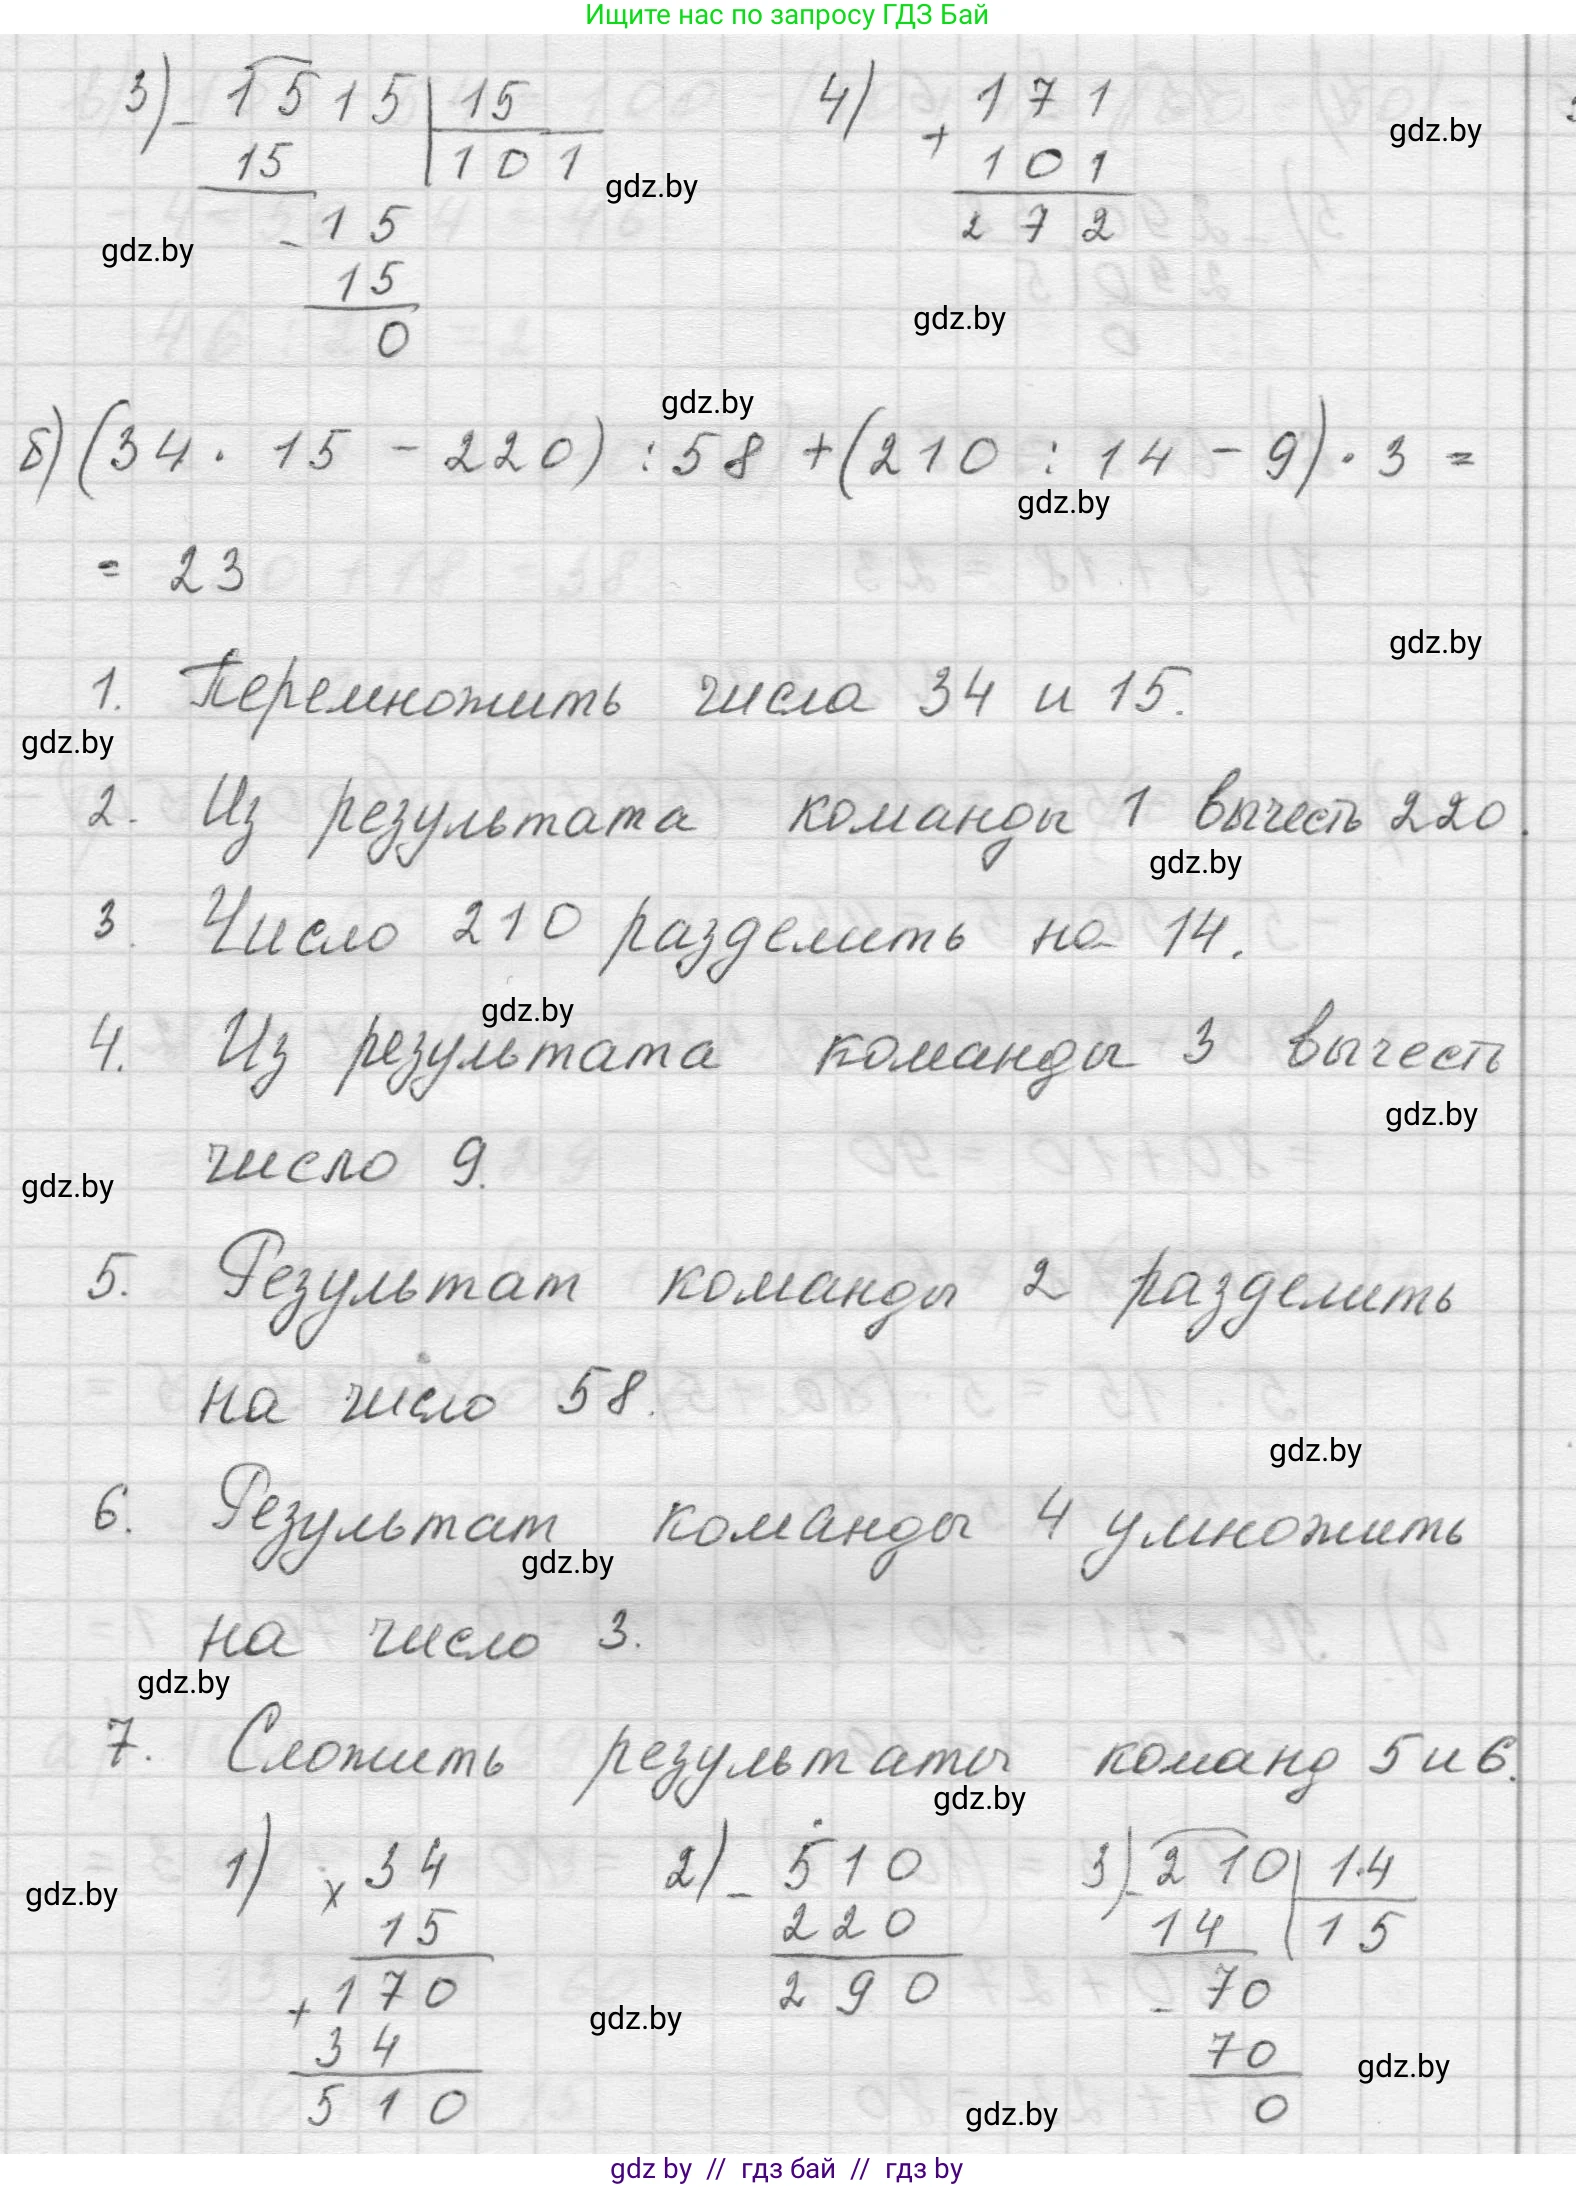 Ищите нас по запросу ГДЗ Бай
3) - 1515 | 15 4) 171
15 101 + 101
- 15 272
15
0
gdz.by
gdz.by
gdz.by
gdz.by
gdz.by
б) (34 · 15 - 220) : 58 + (210 : 14 - 9) · 3 =
gdz.by
= 23
gdz.by
1. Перемножить числа 34 и 15.
gdz.by
2. Из результата команды 1 вычесть 220.
gdz.by
3. Число 210 разделить на 14.
gdz.by
4. Из результата команды 3 вычесть
gdz.by
число 9.
gdz.by
5. Результат команды 2 разделить
на число 58.
gdz.by
6. Результат команды 4 умножить
gdz.by
на число 3.
gdz.by
7. Сложить результаты команд 5 и 6.
gdz.by
1) × 34 2) - 510 3) - 210 | 14
gdz.by
15 220 14 15
+ 170 290 - 70
gdz.by
34 70
gdz.by
510 0
gdz.by
gdz by // гдз бай // гдз by